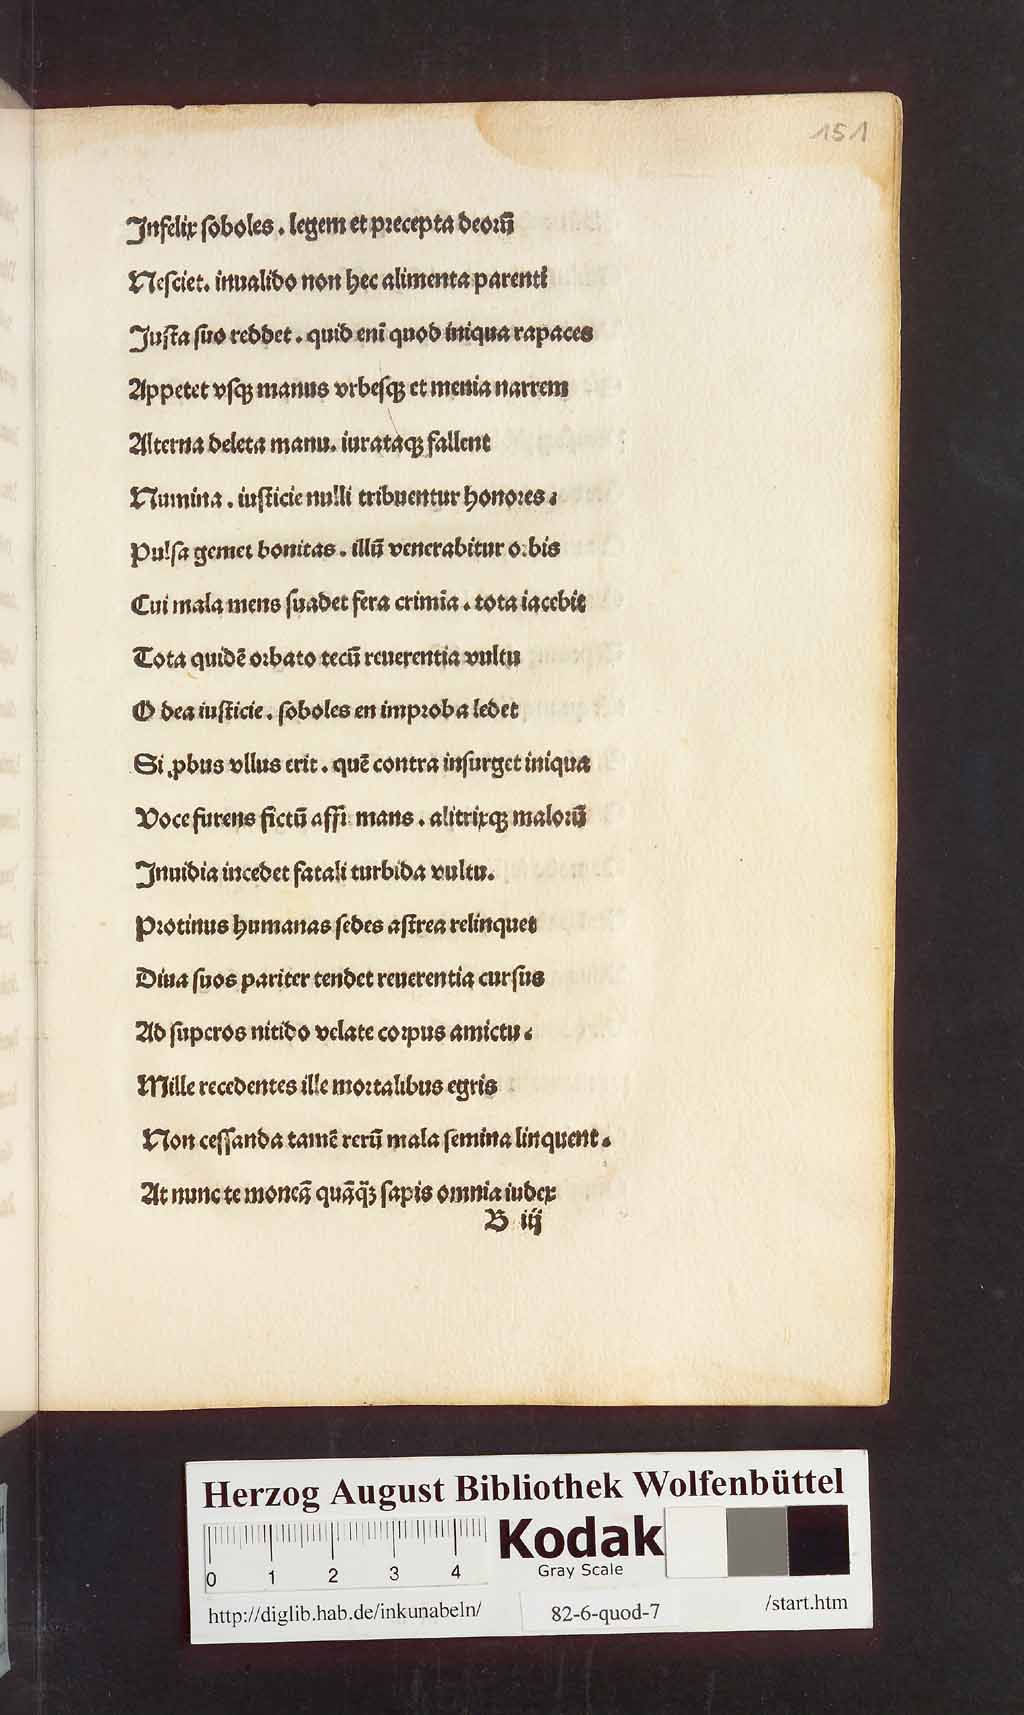 151
Infelix ſoboles . legem et precepta deorū
Neſciet. inualido non hec alimenta parenti
Juſta ſuo reddet . quid eni̅ quod iniqua rapaces
Appetet vſqꝫ manus vrbeſqꝫ et menia narrem
Alterna deleta manu. iurataqꝫ fallent
Numina . iuſticie nulli tribuentur honores .
Pulſa gemet bonitas . illū venerabitur orbis
Cui mala mens ſuadet fera crimīa . tota iacebit
Tota quidē orbato tecū reuerentia vultu
O dea iuſticie . ſoboles en improba ledet
Si ꝓbus vllus erit . quē contra inſurget iniqua
Voce furens fictū affi mans . alitrixqꝫ malorū
Inuidia incedet fatali turbida vultu.
Protinus humanas ſedes aſtrea relinquet
Diua ſuos pariter tendet reuerentia curſus
Ad ſuperos nitido velate corpus amictu .
Mille recedentes ille mortalibus egris
Non ceſſanda tamē rerū mala ſemina linquent .
At nunc te moneā quāq̄ꝫ ſapis omnia iudex
B iij
Herzog August Bibliothek Wolfenbüttel
0 1 2 3 4
Kodak
Gray Scale
http://diglib.hab.de/inkunabeln/ 82-6-quod-7 /start.htm